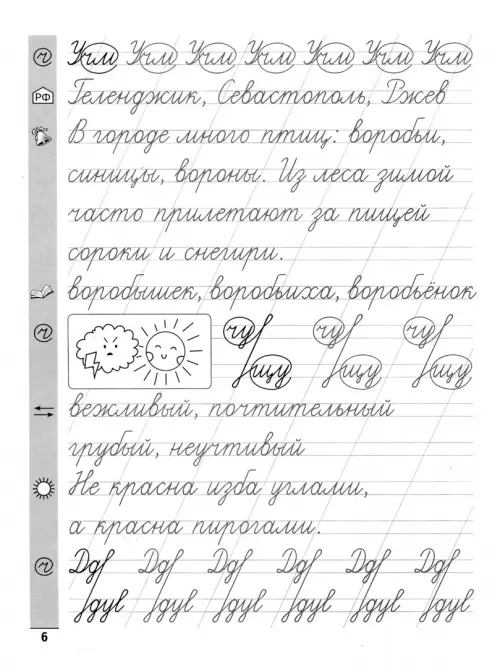 Учи Учи Учи Учи Учи Учи Учи
РФ
Геленджик, Севастополь, Ржев
В городе много птиц: воробьи,
синицы, вороны. Из леса зимой
часто прилетают за пищей
сороки и снегири.
воробышек, воробьиха, воробьёнок
чу чу чу
щу щу щу
вежливый, почтительный
грубый, неучтивый
Не красна изба углами,
а красна пирогами.
Дд Дд Дд Дд Дд Дд